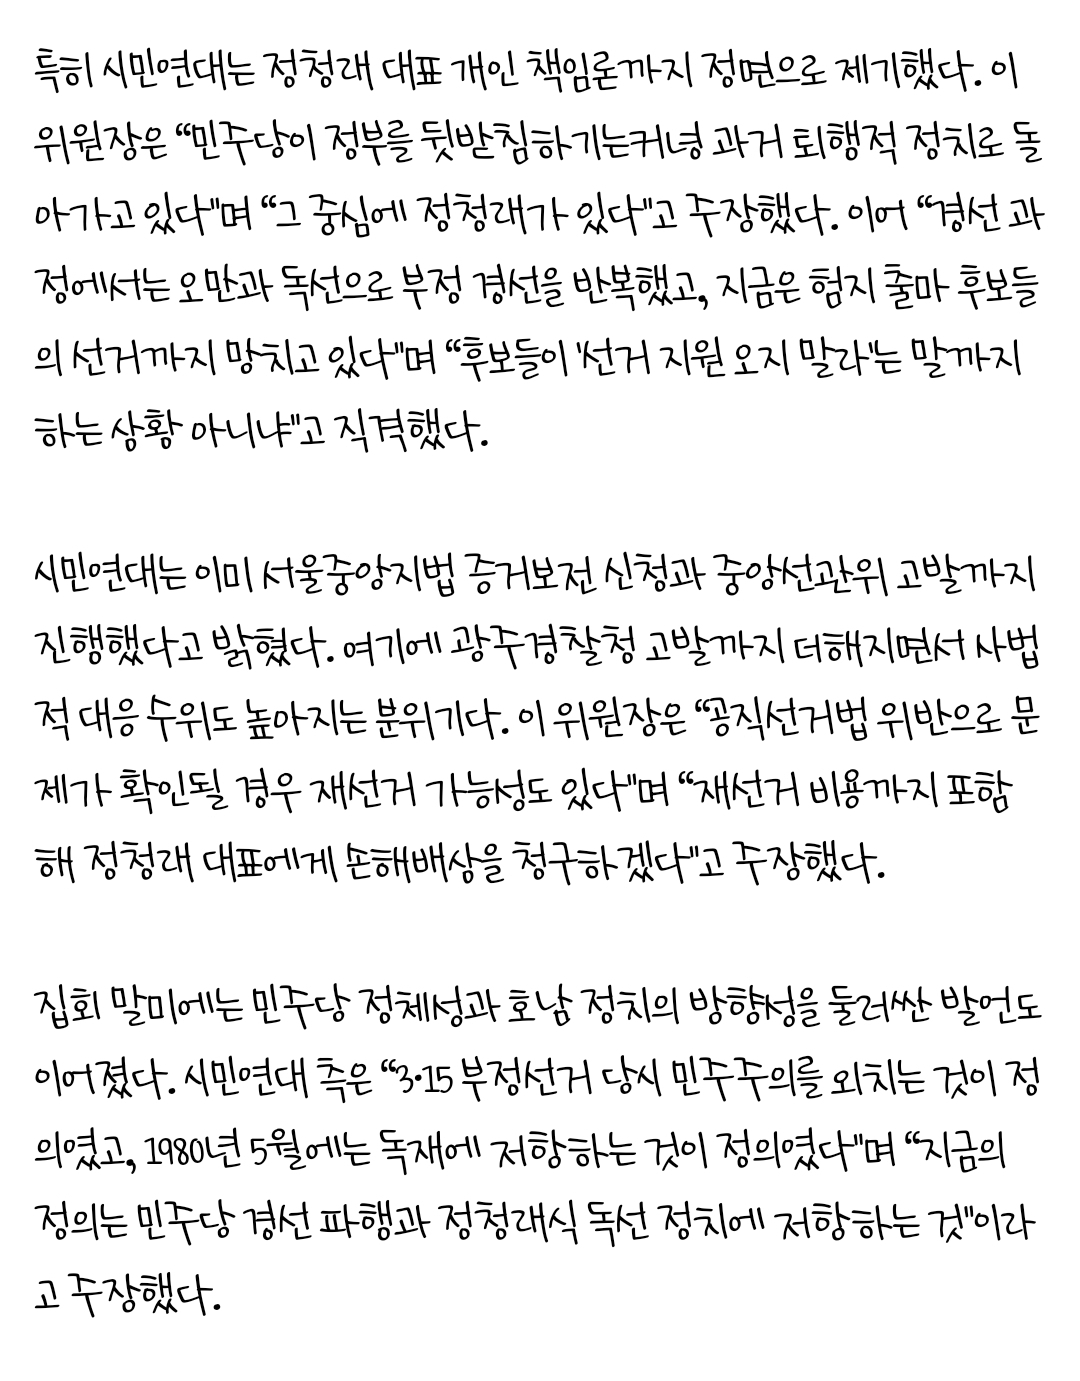 특히 시민연대는 정청래 대표 개인 책임론까지 정면으로 제기했다. 이
위원장은 “민주당이 정부를 뒷받침하기는커녕 과거 퇴행적 정치로 돌
아가고 있다"며 “그 중심에 정청래가 있다"고 주장했다. 이어 “경선 과
정에서는 오만과 독선으로 부정 경선을 반복했고, 지금은 험지 출마 후보들
의 선거까지 망치고 있다"며 “후보들이 '선거 지원 오지 말라'는 말까지
하는 상황 아니냐"고 직격했다.
시민연대는 이미 서울중앙지법 증거보전 신청과 중앙선관위 고발까지
진행했다고 밝혔다. 여기에 광주경찰청 고발까지 더해지면서 사법
적 대응 수위도 높아지는 분위기다. 이 위원장은 “공직선거법 위반으로 문
제가 확인될 경우 재선거 가능성도 있다"며 “재선거 비용까지 포함
해 정청래 대표에게 손해배상을 청구하겠다"고 주장했다.
집회 말미에는 민주당 정체성과 호남 정치의 방향성을 둘러싼 발언도
이어졌다. 시민연대 측은 “3·15 부정선거 당시 민주주의를 외치는 것이 정
의였고, 1980년 5월에는 독재에 저항하는 것이 정의였다"며 “지금의
정의는 민주당 경선 파행과 정청래식 독선 정치에 저항하는 것"이라
고 주장했다.